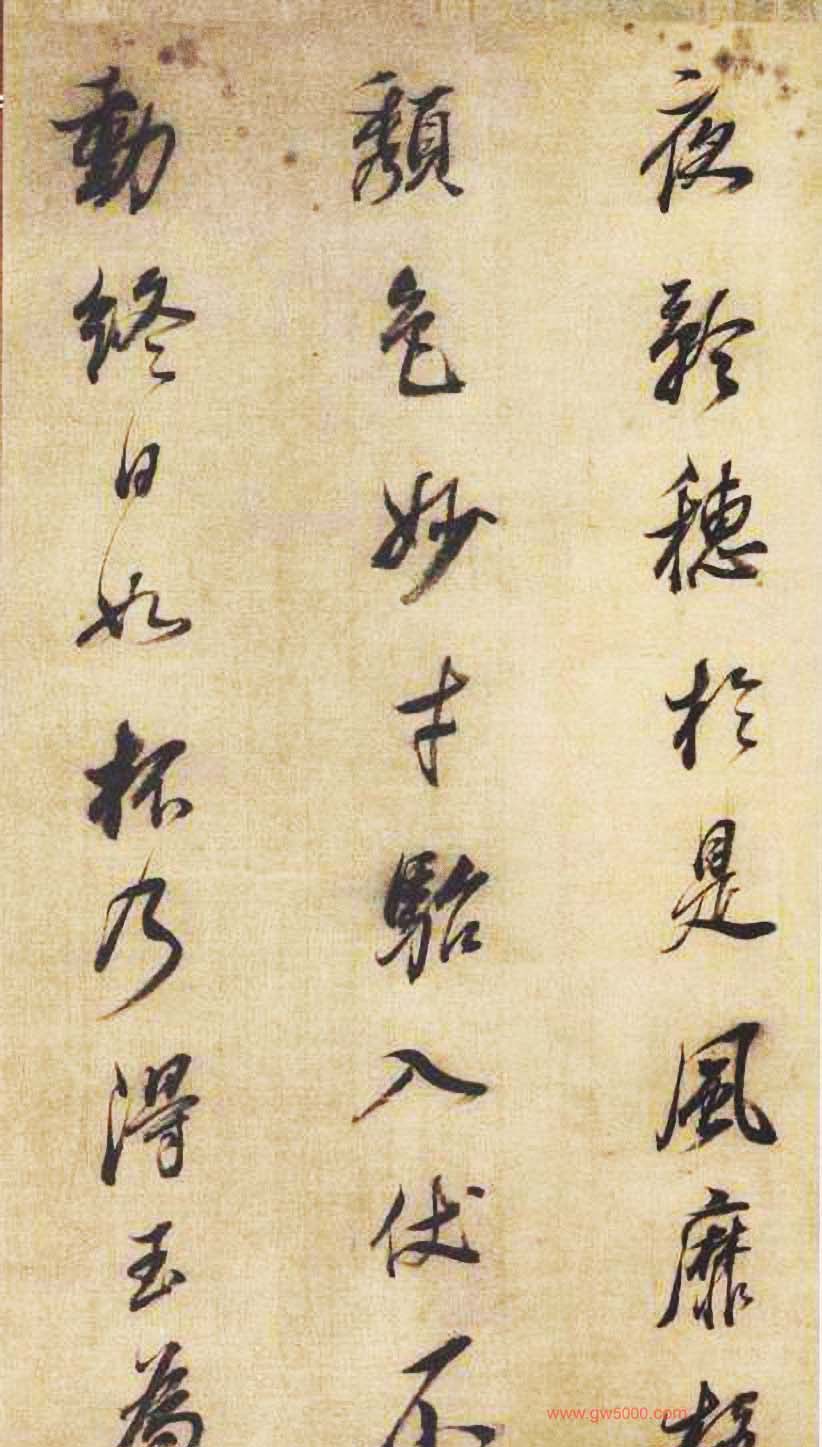 夜穗於是風靡
頹色妙才駘入伏不
動終日如杯乃得玉為
www.gw5000.com